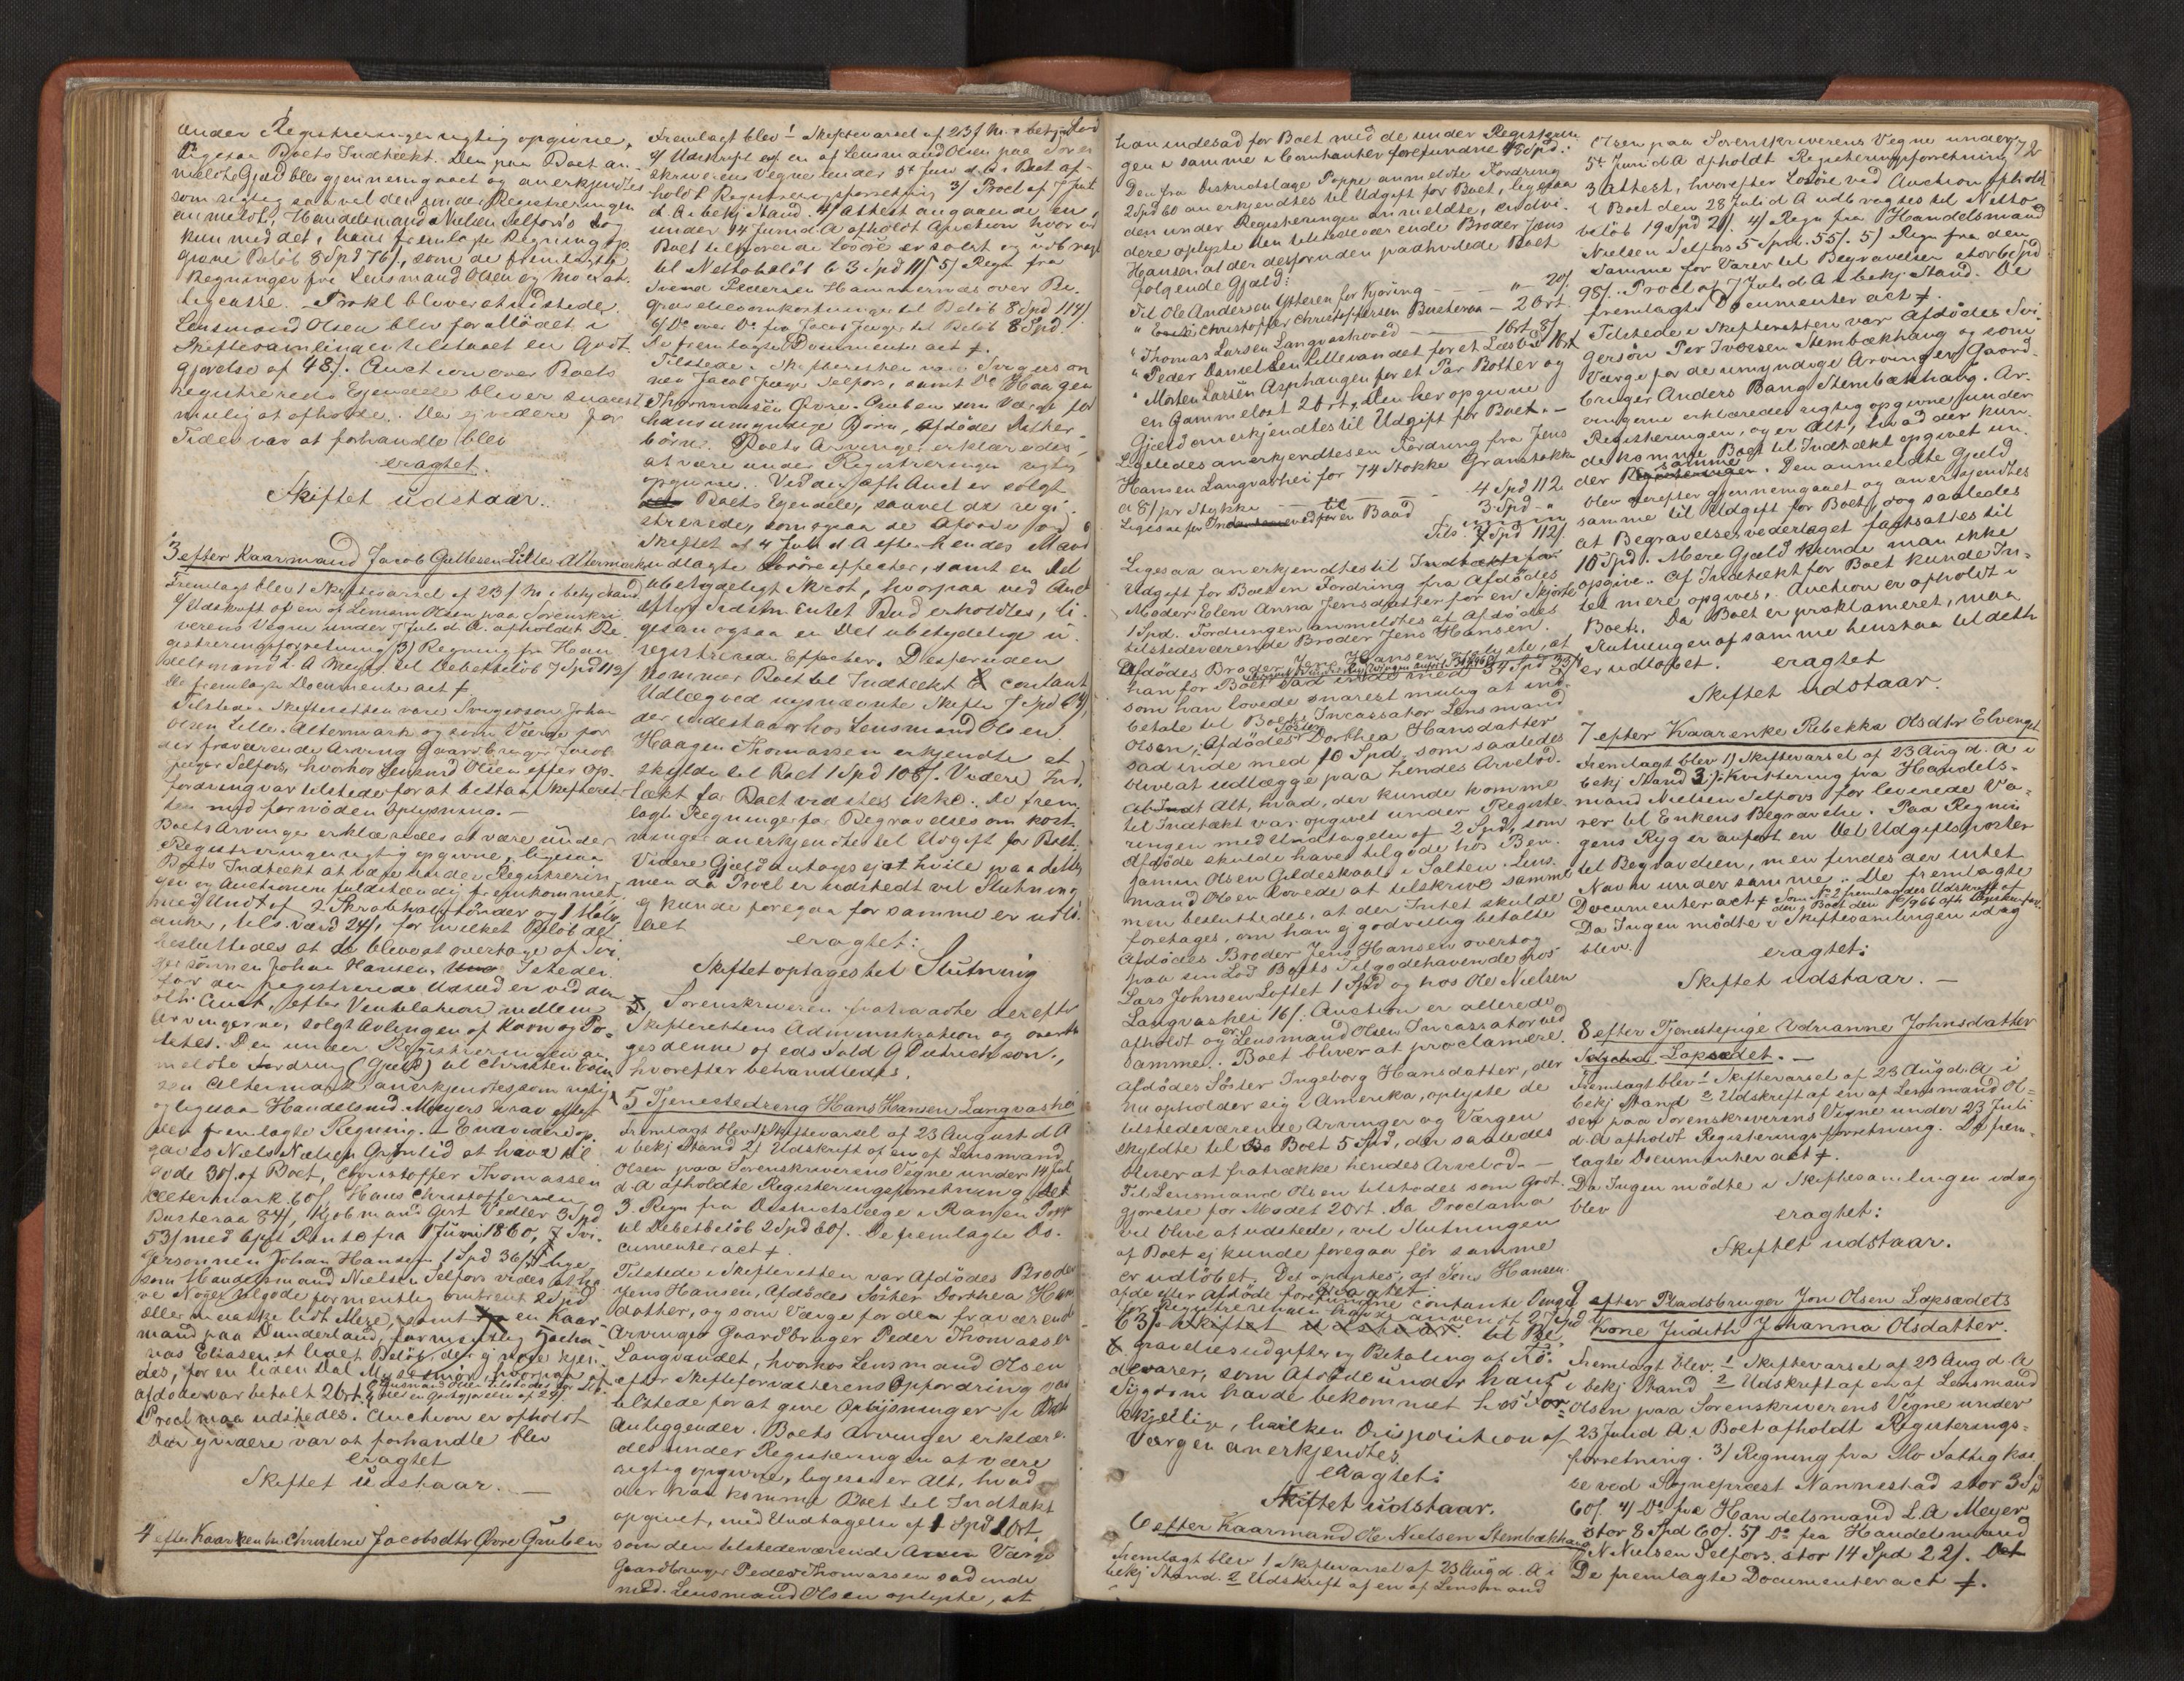 under Registreringen rigtig opgivne,
ligesaa Boets Indtækt. Den paa Boet an
meldte Gjæld blev gjennemgaaet og anerkjendtes
som rigtig saavel den under Registreringen
anmeldt, Handelsmand Nielsen Selfors dog
kun med det, hans fremlagte Regning op
givne Beløb 8 Spd 76/, som de fremlagte
Regninger fra Lensmand Olsen og Mo Fat
tigcasse. Prokl bliver at udstede.
Lensmand Olsen blev for Mødet i
Skiftesamlingen tilstaaet en Godt
gjørelse af 48/. Auction over Boets
registrerede Eiendele bliver snarest
mulig at afholde. Da ej videre for
Tiden var at forhandle blev
eragtet.
Skiftet udstaar.
3 efter Kaarmand Jacob Gullesen Lille Altermark
Fremlagt blev 1 Skiftevarsel af 23/ M. i bekj Stand
2/ Udskrift af en af Lensm Olsen paa Sorenskri
verens Vegne under 7 Juli d. A. afholdt Re
gistreringsforretning 3) Regning fra Han
delsmand L A Meyer til Debetbeløb 7 Spd 112/
De fremlagte Documenter act ┼.
Tilstede i Skifteretten vare Svigersøn Johan
Olsen Lille Altermark og som Værge for
den fraværende Arving Gaardbruger Jacob
Jæger Selfors, hvorhos Lensmd Olsen efter Op
fordring var tilstede for at bistaa Skifteret
ten med fornøden Oplysning.
Boets Arvinger erklæredes at være under
Registreringen rigtig opgivne, ligesaa
Boets Indtækt at være under Registrerin
gen og Auctionen fuldstændig fremkommet,
med Undt af 2 Skrabhalvtønder og 1 Halv
anker, tils. værd 24/, for hvilket Beløb det
besluttedes at de blev at overtage af Svi
gersønnen Johan Hansen. Isteden
for den registrerede Udsæd er ved den
afh. Auct. efter Ventilation mellem
Arvingerne, solgt Avlingen af Korn og Po
tetes. Den under Registreringen an
meldte Fordring (Gjæld) til Christen Olsen
sen Altermark anerkjendtes som rigtig
og ligesaa Handelsmd. Meyers Krav efter
den fremlagte Regning. Endvidere op
gaves Niels Nielsen Grønlid at have til
gode 30/ af Boet, Christoffer Thomassen
Altermark 60/, Hans Christoffersen
Busteraa 84/, Kjøbmand Gert Vedler 3 Spd
53/ med 6 pct Rente fra 1 Juni 1860, Svi
gersønnen Johan Hansen 1 Spd 36/, lige
som Handelsmand Nielsen Selfors vides at ha
ve Noget tilgode formentlig omtrent 2 Spd
eller maaske lidt Mere, samt en Kaar
mand paa Dunderland, formentlig Zacha
rias Eliasen et lidet Beløb, der ej nøie kjen
des, for en liden Del Mysesmør, hvorpaa af
afdøde var betalt 20rt. Lensmand Olsen tilstodes for Sit
Møde en Godtgjørelse af 24/.
Procl maa udstedes. Auction er afholdt
Da ej videre var at forhandle blev
eragtet
Skiftet udstaar.
4 efter Kaarenke Christine Jacobsdtr Øvre Gruben
Fremlagt blev 1 Skiftevarsel af 23/ M. i bekj Stand
2/ Udskrift af en af Lensmand Olsen paa Soren
skriverens Vegne under 5te Juni d A i Boet af
holdt Registreringsforretning 3/ Procl af 7 Juli
d. A i bekj Stand. 4/ Attest angaaende en
under 14 Juni d. A afholdt Auction hvor ved
Boet tilhørende Løsøre er solgt og udbragt
til Nettobeløb 63 Spd 11/ 5/ Regn fra
Svend Pedersen Hammernæs over Be
gravelsesomkostninger til Beløb 8 Spd 114/
6/ Do over Do fra Jacob Jæger til Beløb 8 Spd
De fremlagte Documenter act ┼.
Tilstede i Skifteretten vare Svigersøn
nen Jacob Jæger Selfors, samt Do Haagen
Thomassen Øvre Gruben som Værge for
hans umyndige Børn, Afdødes Datter
børn. Boets Arvinger erklæredes
at være under Registreringen rigtig
opgivne. Ved den afh Auct er solgt
Boets Eiendele, saavel de regi
strerede, som ogsaa de Afdøde ved
Skiftet af 4 Juli d A efter hendes Mand
udlagte Løsøreeffecter, samt en Del
ubetydeligt Skrot, hvorpaa ved Auct
efter Sidstn Intet Bud erholdtes, li
gesaa ogsaa en Del ubetydelige u
registrerede Effecter. Desforuden
kommer Boet til Indtækt contant
Udlæg ved nysnævnte Skifte 7 Spd 69/,
der indestaar hos Lensmand Olsen.
Haagen Thomassen erkjendte at
skylde til Boet 1 Spd 108/. Videre Ind
tækt for Boet vidstes ikke. De frem
lagte Regninger for Begravelsesomkost
ninger anerkjendtes til Udgift for Boet.
Videre Gjæld antages ej at hvile paa dette
men da Procl er udstedt vil Slutning
ej kunde foregaa før samme er udlø
bet
eragtet:
Skiftet optages til Slutning
Sorenskriveren fratraadte derefter
Skifterettens Administration og overto
ges denne af eds Fuld G Dietrichson,
hvorefter behandledes.
5 Tjenestedreng Hans Hansen Langvashei
Fremlagt blev 1/ Skiftevarsel af 23 August d A
i bekj Stand 2/ Udskrift af en af Lensmand
Olsen paa Sorenskriverens Vegne under 14 Juli
d A afholdte Registreringsforretning
3. Regn fra Districtslæge i Ranen Poppe
til Debetbeløb 2 Spd 60/. De fremlagte Do
cumenter act ┼.
Tilstede i Skifteretten var Afdødes Broder
Jens Hansen, Afdødes Søster Dorthea Hans
datter, og som Værge for den fraværende
Arvinger Gaardbruger Peder Thomassen
Langvandet, hvorhos Lensmand Olsen
efter Skifteforvalterens Opfordring var
tilstede for at give Oplysninger i Boets
Anliggender. Boets Arvinger erklære
des under Registreringen at være
rigtig opgivne, ligesaa er Alt, hvad
der kan komme Boet til Indtækt
opgivet, med Undtagelse af 1 Spd 2 Ort,
som den tilstedeværende Værge
Gaardbruger Peder Thomassen sad inde
med. Lensmand Olsen oplyste, at
han indesad for Boet med de under Registrerin
gen i samme i Contanter forefundne 18 Spd.
Den fra Districtslæge Poppe anmeldte Fordring
2 Spd 60 anerkjendtes til Udgift for Boet, ligesaa
den under Registreringen anmeldte, endvi
dere oplyste den tilstedeværende Broder Jens
Hansen at der desforuden paahvilede Boet
følgende Gjæld:
Til Ole Andersen Ytteren for Kjøring — " — 20/
" Christoffer Christoffersen Busteraa — 2 Ort
" Thomas Larsen Langvashei — 1 Ort 8/
" Peder Danielsen Lillevandet for et Læs Ved 1 Ort
" Morten Larsen Asphaugen for et Par Botter og
en Gammelost 2 Ort. Den her opgivne
Gjæld anerkjendtes til Udgift for Boet.
Ligeledes anerkjendtes en Fordring fra Jens
Hansen Langvashei for 74 Stokke Granstokke
a 8/ pr Stykke — 4 Spd 112
Ligesaa for en Baad 3 Spd "
Tils. 7 Spd 112/.
Ligesaa anerkjendtes til
Udgift for Boet en Fordring fra Afdødes
Moder Elen Anna Jensdatter for en Skjorte
1 Spd. Fordringen anmeldtes af Afdødes
tilstedeværende Broder Jens Hansen.
Afdødes Broder Jens Hansen oplyste, at
han for Boet sad inde med 34 Spd
som han lovede snarest mulig at ind
betale til Boets Incassator Lensmand
Olsen, Afdødes Søster Dorthea Hansdatter
sad inde med 10 Spd, som saaledes
bliver at udlægge paa hendes Arvelod.
Alt, hvad, der kunde komme
til Indtækt var opgivet under Registre
ringen med Undtagelse af 2 Spd, som
Afdøde skulde have tilgode hos Ben
jamin Olsen Gildeskaal i Salten. Lens
mand Olsen lovede at tilskrive samme
men besluttedes, at der Intet skulde
foretages, om han ej godvillig betalte
Afdødes Broder Jens Hansen overtog
paa sin Lod Boets Tilgodehavende hos
Lars Johnsen Loftet 1 Spd og hos Ole Nielsen
Langvashei 16/. Auction er allerede
afholdt og er Lensmand Olsen Incassator ved
samme. Boet bliver at proclamere.
Afdødes Søster Ingeborg Hansdatter, der
nu opholder sig i Amerika, oplyste de
tilstedeværende Arvinger og Værgen
skyldte til Boet 5 Spd, der saaledes
bliver at fratrække hendes Arvelod.
Til Lensmand Olsen tilstodes som Godt
gjørelse for Mødet 2 Ort. Da Proclama
vil blive at udstede, vil Slutningen
af Boet ej kunde foregaa før samme
er udløbet. Det oplystes, at Jens Hansen
af de efter Afdøde forefundne contante Penge
før Registreringen havde anvendt 2 Spd
63/ til Be
gravelsesudgifter og Betaling af Kø
devarer, som Afdøde under hans
Sygdom havde bekommet hos For
skjellige, hvilken Disposition af
Værgen anerkjendtes.
eragtet:
Skiftet udstaar.
6 efter Kaarmand Ole Nielsen Stenbækhaug
Fremlagt blev 1 Skiftevarsel af 23 Aug d. A i
bekj Stand. 2 Udskrift af en af Lensmand
72
Olsen paa Sorenskriverens Vegne under
5te Juni d A afholdt Registreringsforretning
3 Attest, hvorefter Løsøre ved Auction afholdt
i Boet den 28 Juli d A udbragtes til Netto
beløb 19 Spd 21/. 4/ Regn fra Handelsmand
Nielsen Selfors 5 Spd. 55/. 5/ Regn fra den
Samme for Varer til Begravelsen stor 6 Spd
98/. Procl af 7 Juli d A i bekj. Stand. De
fremlagte Documenter act ┼.
Tilstede i Skifteretten var Afdødes Svi
gersøn Per Iversen Stenbækhaug og som
Værge for de umyndige Arvinger Gaard
bruger Anders Bang Stenbækhaug. Ar
vingerne erklæredes rigtig opgivne under
Registreringen, og er Alt, hvad der kun
de komme Boet til Indtækt opgivet un
der samme. Den anmeldte Gjæld
blev derefter gjennemgaaet og anerkjendtes
samme til Udgift for Boet, dog saaledes
at Begravelsesvederlaget fastsattes til
10 Spd. Mere Gjæld kunde man ikke
opgive. Af Indtækt for Boet kunde In-
tet mere opgives. Auction er afholdt i
Boet. Da Boet er proklameret, maa
Slutningen af samme henstaa til dette
er udløbet. eragtet
Skiftet udstaar.
7 efter Kaarenke Rebekka Olsdtr Elvenget
Fremlagt blev 1) Skiftevarsel af 23 Aug d. A i
bekj Stand 3) Kvittering fra Handels-
mand Nielsen Selfors for leverede Va-
rer til Enkens Begravelse. Paa Regnin
gens Ryg er anført en Del Udgiftsposter
til Begravelsen, men findes der Intet
Navn under samme. De fremlagte
Documenter act ┼ Som No 2 fremlagdes Udskrift af
den i Boet den
Da Ingen mødte i Skiftesamlingen idag
blev eragtet:
Skiftet udstaar. —
8 efter Tjenestepige Adrianne Johnsdatter
Lapsædet. —
Fremlagt blev 1 Skiftevarsel af 23 Aug d. A i
bekj Stand 2 Udskrift af en af Lensmand Ol=
sen paa Sorenskriverens Vegne under 23 Juli
d. A afholdt Registreringsforretning. De frem-
lagte Documenter act ┼.
Da Ingen mødte i Skiftesamlingen idag
blev
eragtet:
Skiftet udstaar.
9 efter Pladsbruger Jon Olsen Lapsædets
Kone Judith Johanna Olsdatter.
Fremlagt blev. 1 Skiftevarsel af 23 Aug d. A
i bekj Stand 2 Udskrift af en af Lensmand
Olsen paa Sorenskriverens Vegne under
23 Juli d A i Boet afholdt Registrerings-
forretning. 3/ Regning fra Mo Fattigkas
se ved Sognepræst Nannestad stor 3 Spd
60/. 4/ Do fra Handelsmand L. A Meyer
stor 8 Spd 60/. 5/ Do fra Handelsmand
N Nielsen Selfors, stor 14 Spd 22/.
De fremlagte Documenter act ┼.